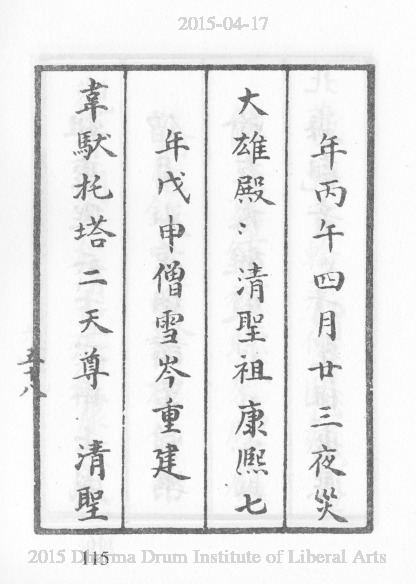 2015-04-17
年丙午四月廿三夜災
大雄殿：清聖祖康熙七
年戊申僧雪岑重建
韋馱托塔二天尊　清聖
五十八
2015 Dharma Drum Institute of Liberal Arts
115